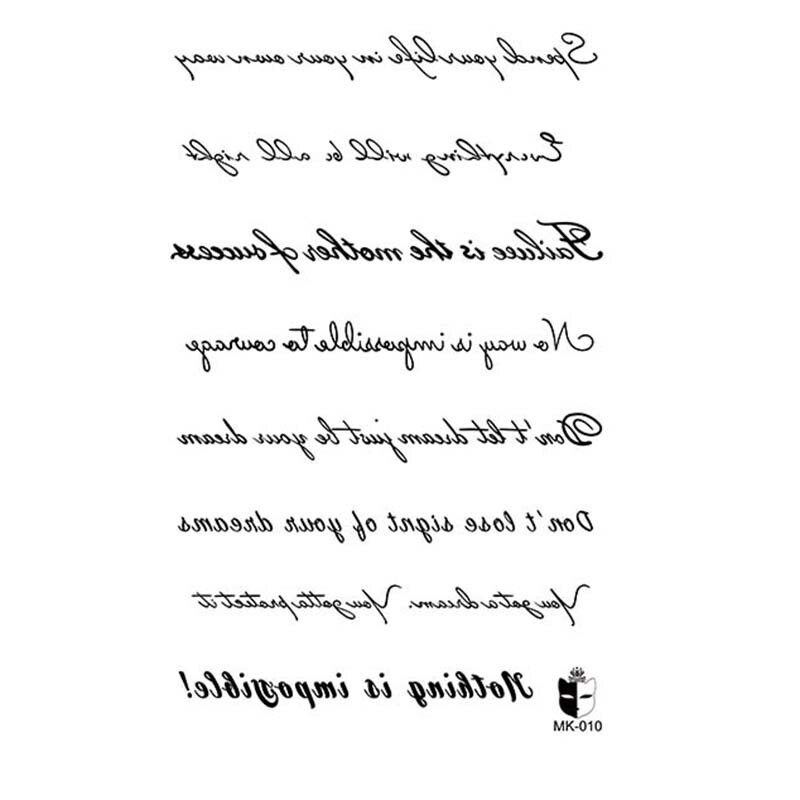 Spend your life in your own way
Everything will be all right
Failuee is the mother of success
No way is impossible to courage
Don't let dream just be your dream
Don't lose signt of your dreams
You got a dream. You gotta protect it
Nothing is impossible!
MK-010